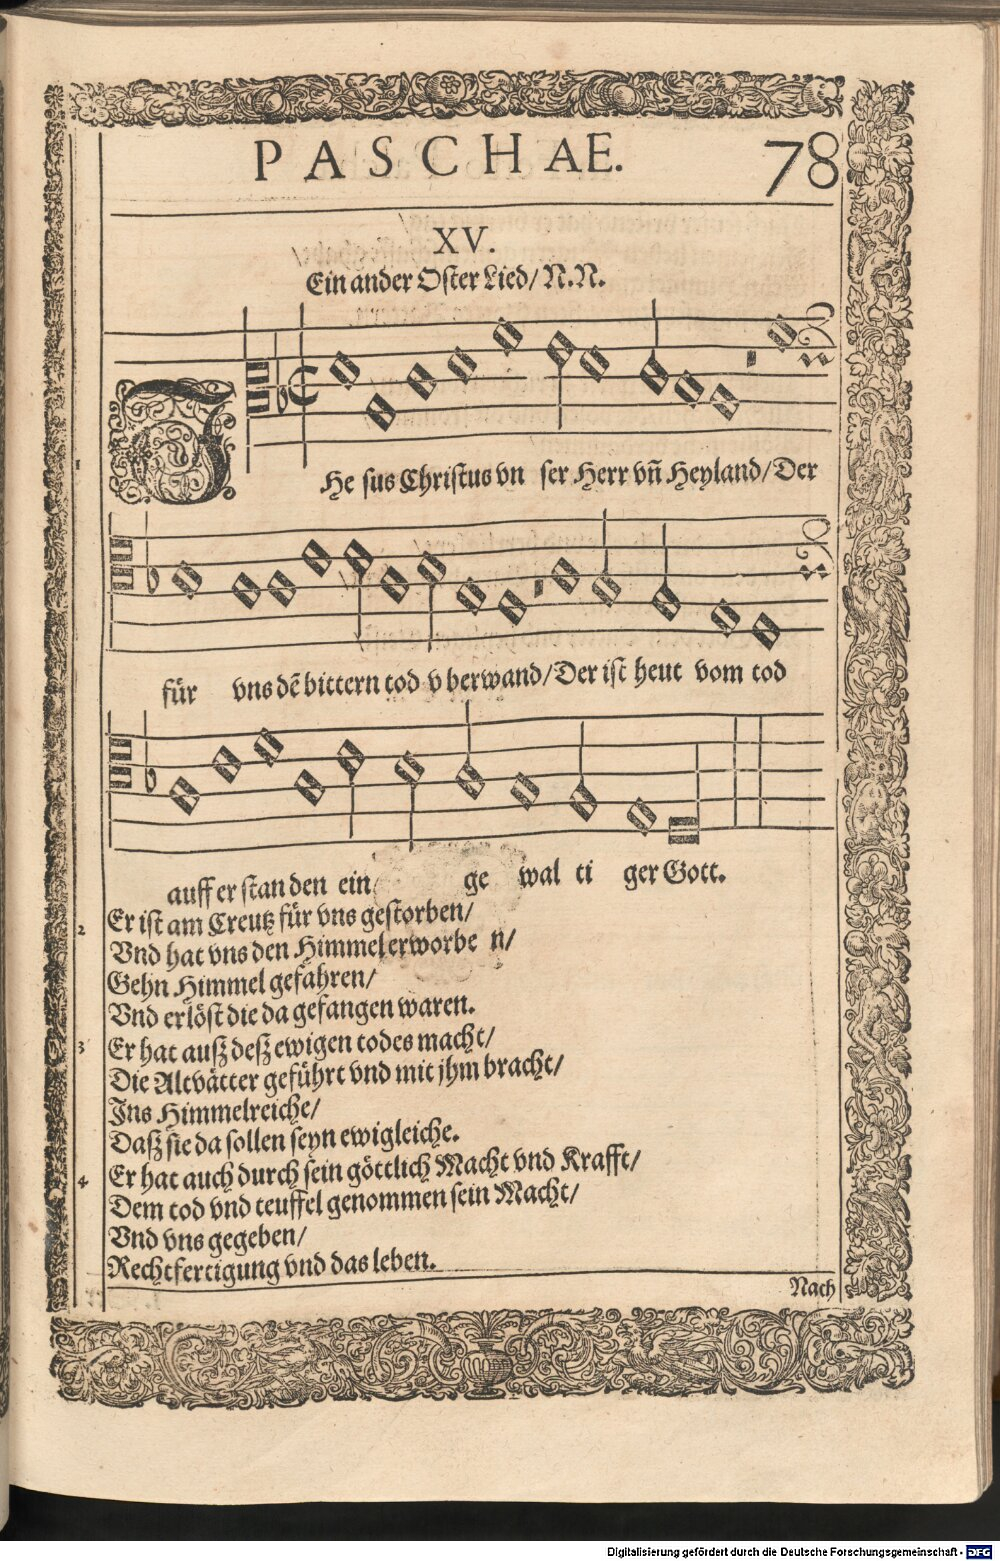 PASCHAE. 78
XV.
Ein ander Oster Lied/ N.N.
JHe sus Christus vn ser Herr vn̄ Heyland/ Der
für vns dē bittern tod v berwand/ Der ist heut vom tod
auff er stan den ein ge wal ti ger Gott.
1
2 Er ist am Creutz für vns gestorben/
Vnd hat vns den Himmel erworbe n/
Gehn Himmel gefahren/
Vnd erlöst die da gefangen waren.
3 Er hat auß deß ewigen todes macht/
Die Altvätter geführt vnd mit jhm bracht/
Ins Himmelreiche/
Daß sie da sollen seyn ewigleiche.
4 Er hat auch durch sein göttlich Macht vnd Krafft/
Dem tod vnd teuffel genommen sein Macht/
Vnd vns gegeben/
Rechtfertigung vnd das leben.
Nach
Digitalisierung gefördert durch die Deutsche Forschungsgemeinschaft - DFG